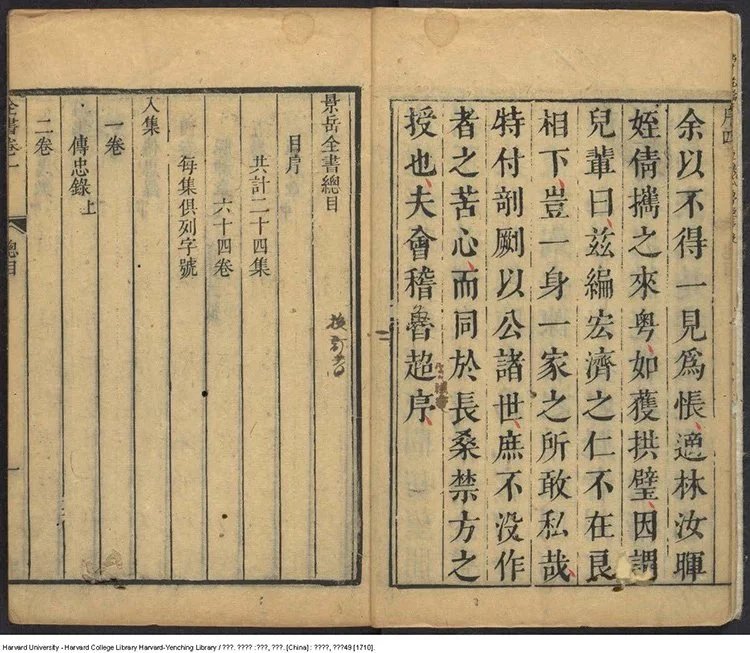 余以不得一見爲悵適林汝暉
姪倩攜之來粤如獲拱璧因謂
兒輩曰兹編宏濟之仁不在良
相下豈一身一家之所敢私哉
特付剞劂以公諸世庶不没作
者之苦心而同於長桑禁方之
授也夫會稽魯超序
景岳全書總目
目序
共計二十四集
六十四卷
每集俱列字號
入集
一卷
傳忠錄上
二卷
全書卷一
總目
一
Harvard University - Harvard College Library Harvard-Yenching Library / ???. ???? :???, ???. [China] : ????, ???49 [1710].